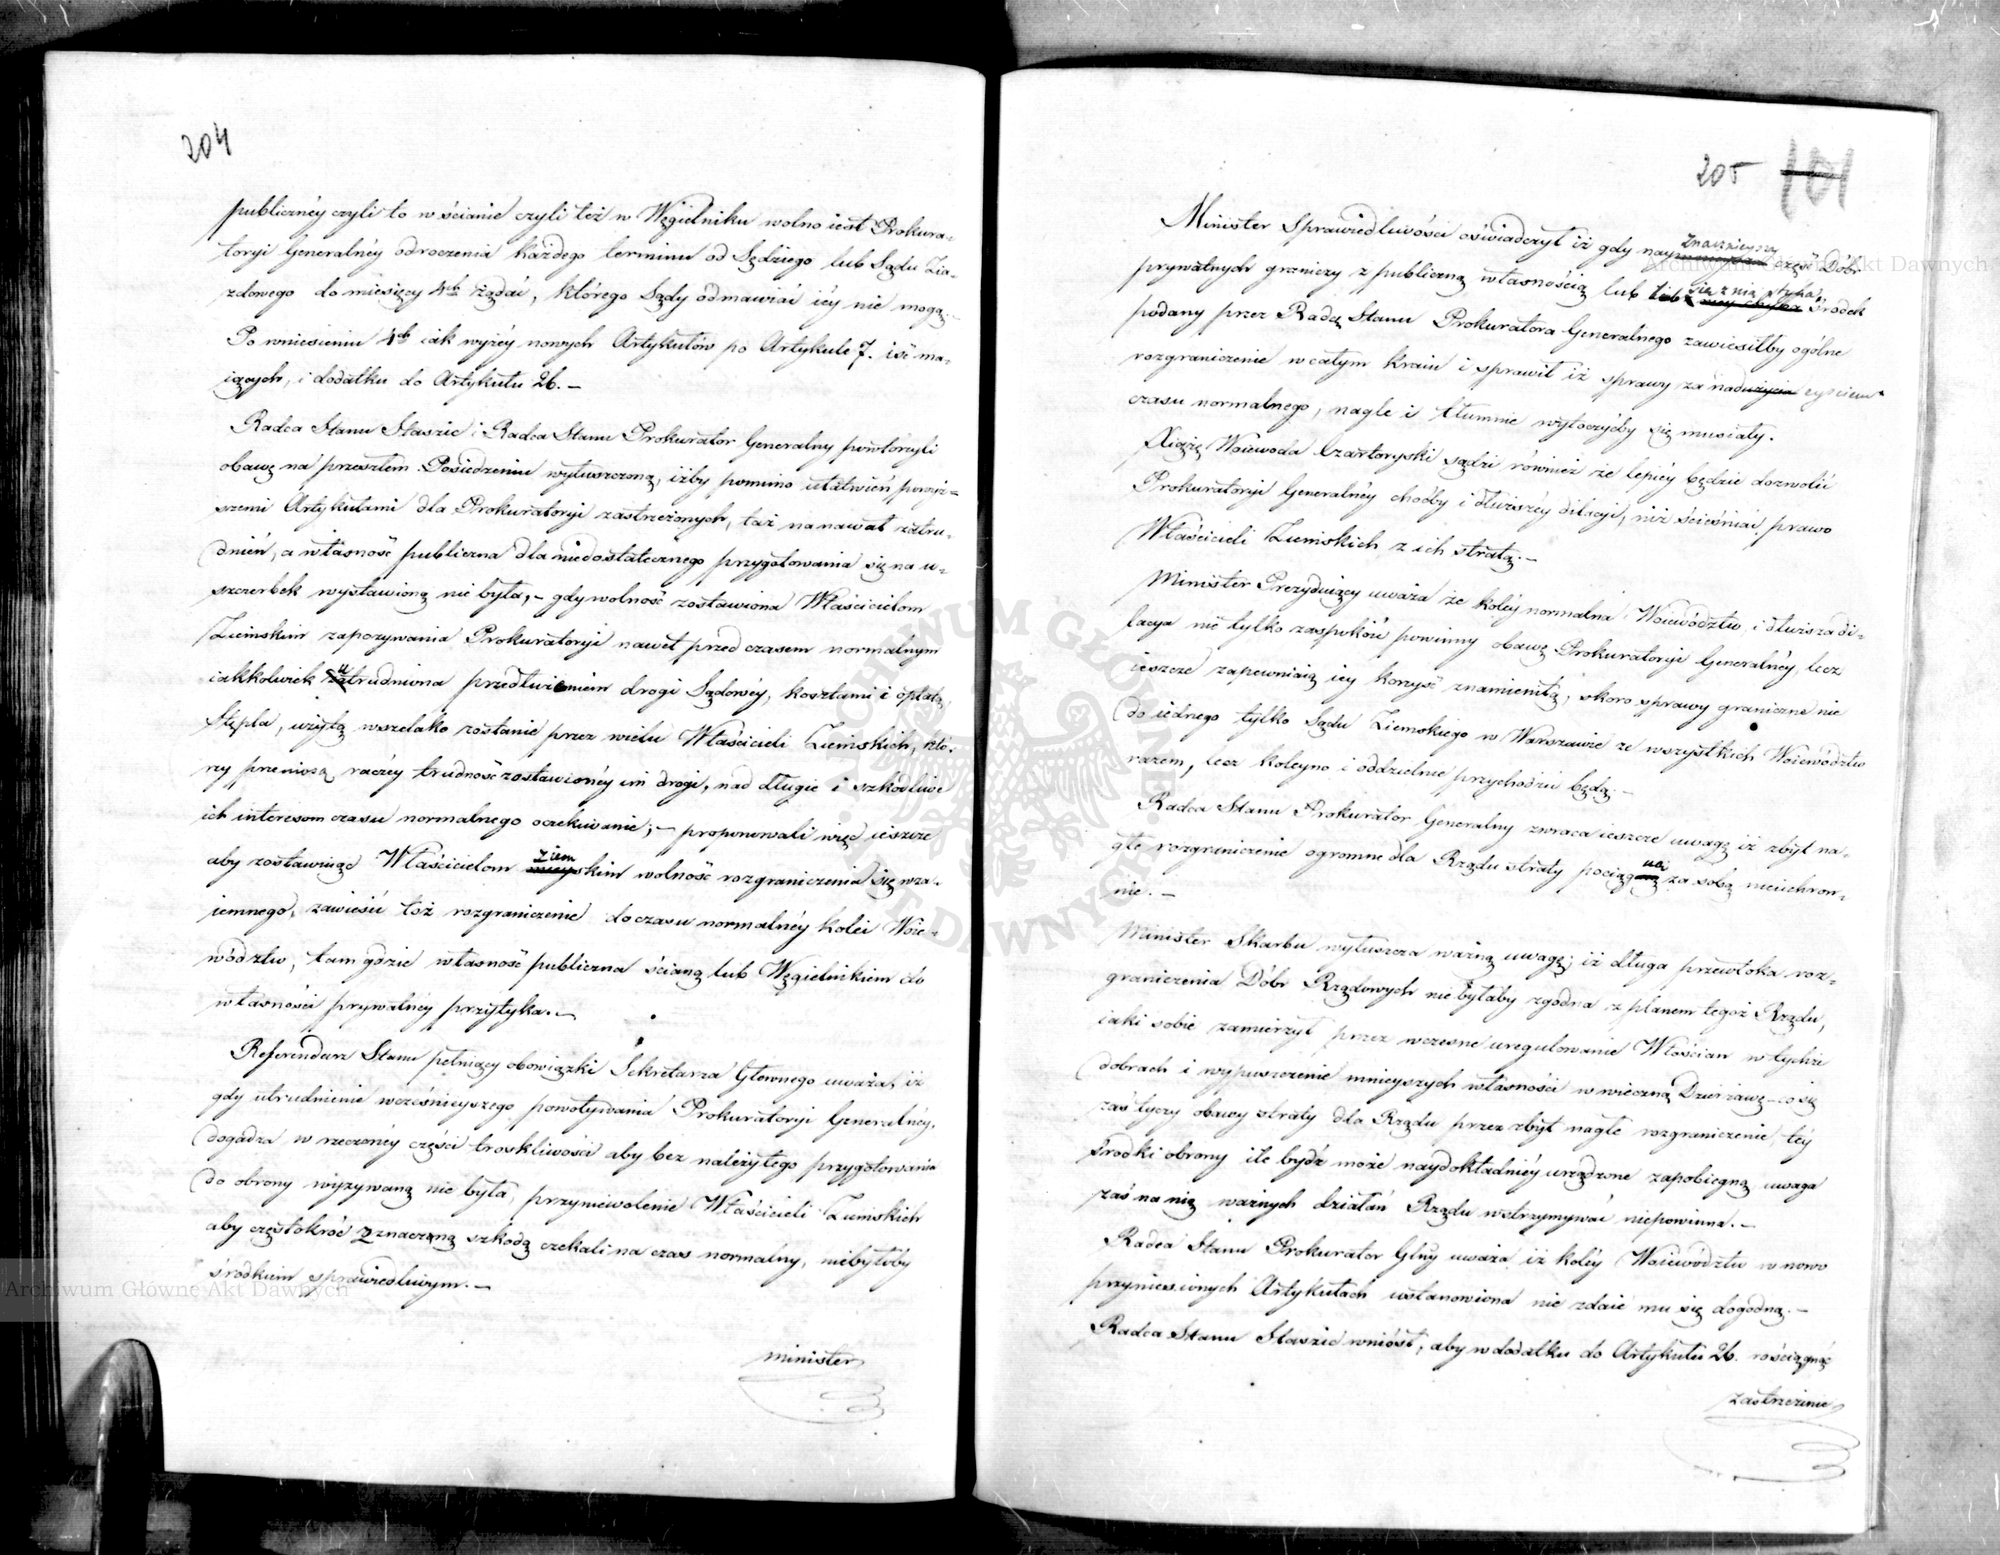 204
publicznéy czyli to w ścianie czyli też w Węgielniku wolno iest Prokura-
toryi Generalnéy odroczenia każdego terminu od Sędziego lub Sądu Zia-
zdowego do miesięcy 4ch żądać, którego Sądy odmawiać iéy nie mogą.-
Po wniesieniu 4ch iak wyżéy nowych Artykułów po Artykule 7. iść ma-
iących, i dodatku do Artykułu 26.-
Radca Stanu Staszic i Radca Stanu Prokurator Generalny powtórzyli
obawę na przeszłem Posiedzeniu wytuszczoną, iżby pomimo ułatwień powyż-
szemi Artykułami dla Prokuratoryi zastrzeżonych, taż na nawał zatru-
dnień, a własność publiczna dla niedostatecznego przygotowania się na u-
szczerbek wystawioną nie była,- gdy wolność zostawiona Właścicielom
Ziemskim zapozywania Prokuratoryi nawet przed czasem normalnym
iakkolwiek utrudniona przedłużeniem drogi Sądowéy, kosztami i opłatą
Stępla, użytą wszelako zostanie przez wielu Właścicieli Ziemskich, któ-
rzy przeniosą raczéy trudność zostawionéy im drogi, nad długie i szkodliwe
ich interesom czasu normalnego oczekiwanie;- proponowali więc ieszcze
aby zostawuiąc Właścicielom ziemskim wolność rozgraniczenia się wza-
iemnego, zawiesić toż rozgraniczenie do czasu normalnéy kolei Woie-
wództw, tam gdzie własność publiczna ścianą lub Węgielnikiem do
własności prywatnéy przytyka.-
Referendarz Stanu pełniący obowiązki Sekretarza Głównego uważa, iż
gdy utrudnienie wcześnieyszego powoływania Prokuratoryi Generalnéy,
dogadza w rzeczonéy części troskliwości aby bez należytego przygotowania
do obrony wyzywaną nie była, przyniewolenie Właścicieli Ziemskich
aby częstokróć z znaczną szkodą czekali na czas normalny, niebyłoby
środkiem sprawiedliwym.-
Minister
205 101
Minister Sprawiedliwości oświadczył iż gdy nayznacznieyszy część Dóbr
prywatnych graniczy z publiczną własnością lub się z nią styka, środek
podany przez Radcę Stanu Prokuratora Generalnego zawiesiłby ogólne
rozgraniczenie w całym kraiu i sprawił iż sprawy za nadużycia zyściem
czasu normalnego, nagle i tłumnie wytoczyćby się musiały.
Xiążę Woiewoda Czartoryski sądzi również że lepiéy będzie dozwolić
Prokuratoryi Generalnéy choćby i dłuższéy dilacyi, niż ścieśniać prawo
Właścicieli Ziemskich z ich stratą.-
Minister Prezyduiący uważa że koléy normalna Woiewództw i dłuższa di-
lacya nie tylko zaspokoić powinny obawę Prokuratoryi Generalnéy, lecz
ieszcze zapewniaią iey korzyść znamienitą, skoro sprawy graniczne nie
do iednego tylko Sądu Ziemskiego w Warszawie ze wszystkich Woiewództw
razem, lecz koleyno i oddzielnie przychodzić będą.-
Radca Stanu Prokurator Generalny zwraca ieszcze uwagę iż zbyt na-
głe rozgraniczenie ogromne dla Rządu straty pociągnąć za sobą nieuchron-
nie.-
Minister Skarbu wytuszcza ważną uwagę; iż długa przewłoka roz-
graniczenia Dóbr Rządowych nie byłaby zgodna z planem tegoż Rządu,
iaki sobie zamierzył przez wczesne uregulowanie Włościan w tychże
dobrach i wypuszczenie mnieyszych własności w wieczną Dzierżawę - co się
zaś tyczy obawy straty dla Rządu przez zbyt nagłe rozgraniczenie, téy
środki obrony ile bydź może naydokładniéy urządzone zapobiegną, uwaga
zaś na nią ważnych działań Rządu wstrzymywać niepowinna.-
Radca Stanu Prokurator Glny uważa iż koléy Woiewództw w nowo
przyniesionych Artykułach ustanowiona nie zdaie mu się dogodną.-
Radca Stanu Staszic wniósł, aby w dodatku do Artykułu 26. rościągnąć
zastrzeżenie